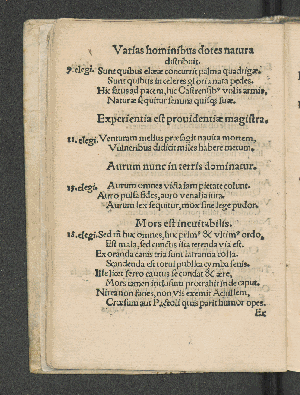 Varias hominibus dotes natura
distribuit.
9. elegi. Sunt quibus eleæ concurrit palma quadrigæ.
Sunt quibus in celeres gloria nata pedes.
Hic satus ad pacem, huc Castrensib9 vtilis armis,
Naturæ sequitur semina quisq; suæ.
Experientia est prouidentiæ magistra.
11. elegi. Venturam melius præsagit nauita mortem,
Vulneribus didicit miles habere metum.
Aurum nunc in terris dominatur.
15. elegi. Aurum omnes victa iam pietate colunt.
Auro pulsa fides, auro venalia iura.
Aurum lex sequitur, mox sine lege pudor.
Mors est ineuitabilis.
18. elegi. Sed tñ huc omnes, huc prim9 & vltim9 ordo,
Est mala, sed cunctis ista terenda via est.
Exoranda canis tria sunt latrantia colla.
Scandenda est torui publica cymba senis.
Ille licet ferro cautus se condat & ære,
Mors tamen inclusum protrahit inde caput.
Nirea non facies, non vis exemit Achillem,
Crœsum aut Pactoli quas parit humor opes.
Ex